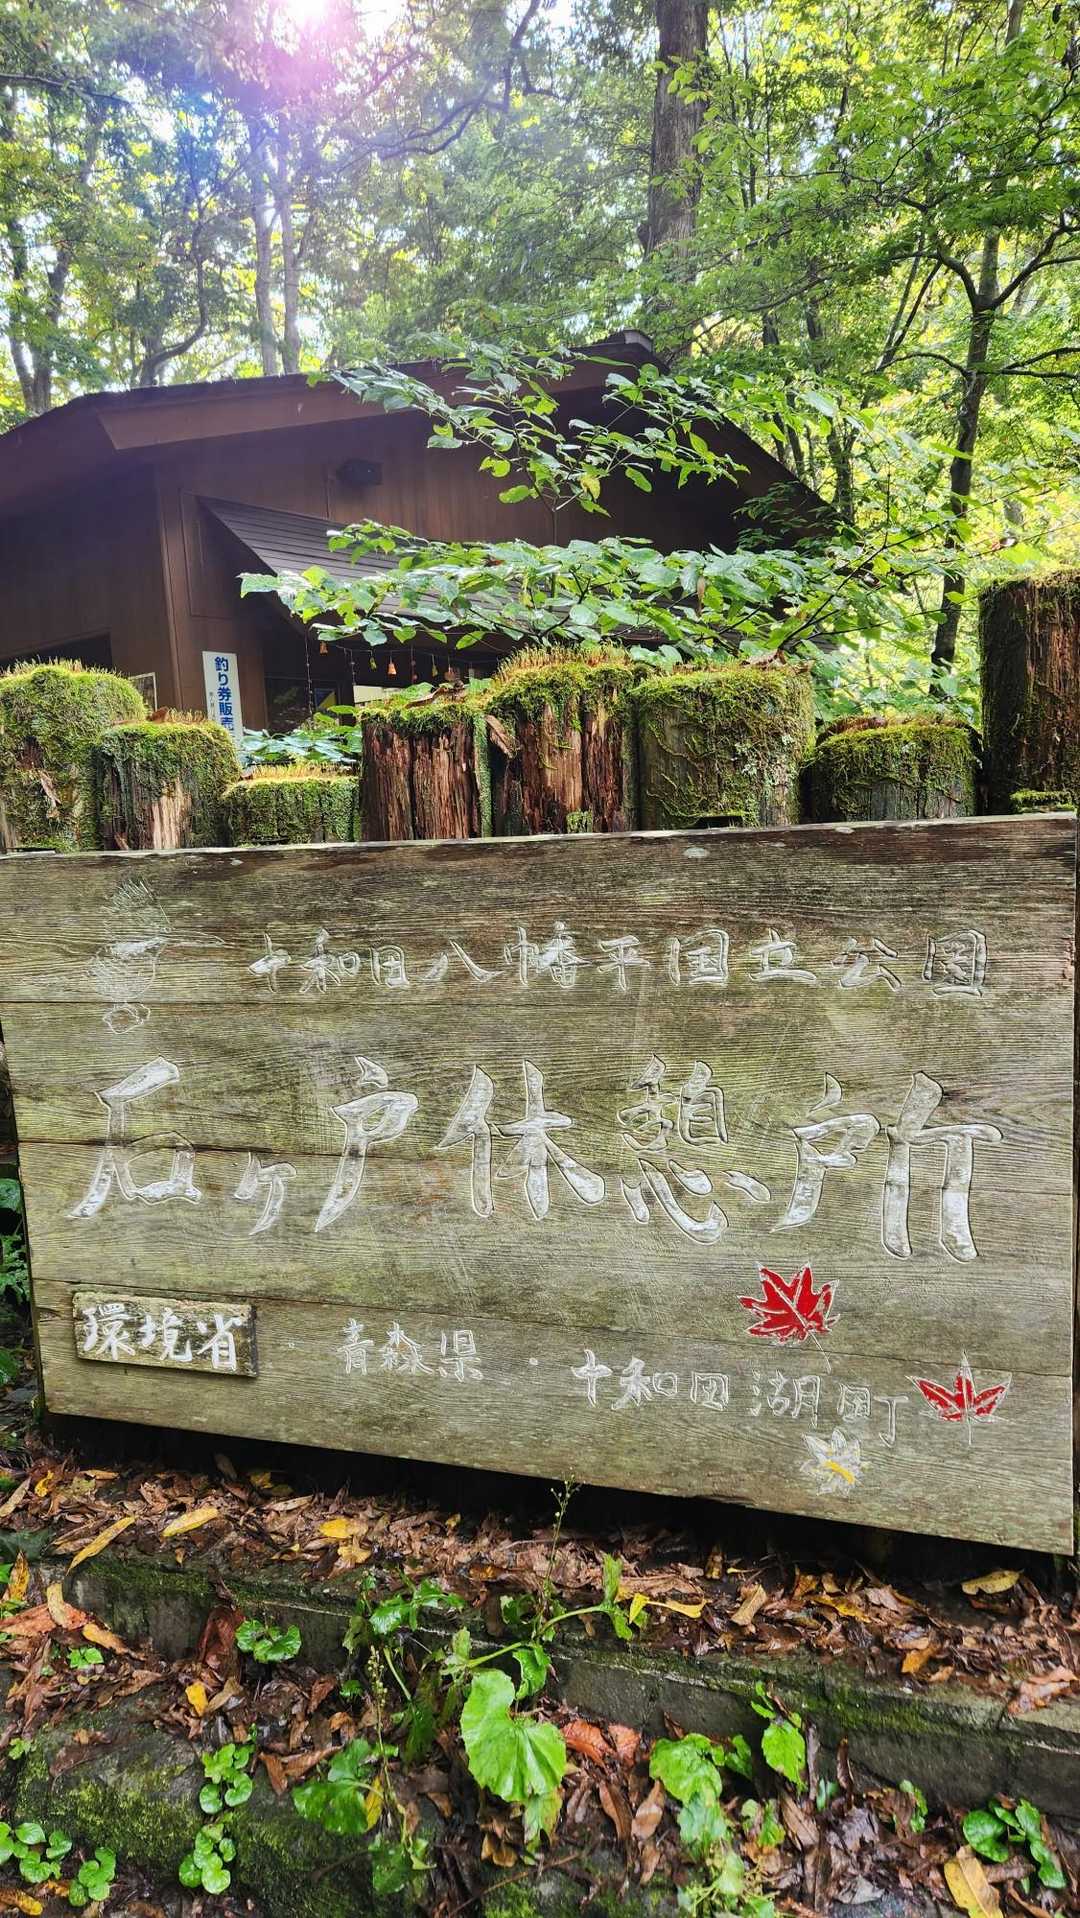 釣り券販売
十和田八幡平国立公園
石ヶ戸休憩所
環境省・青森県・十和田湖町